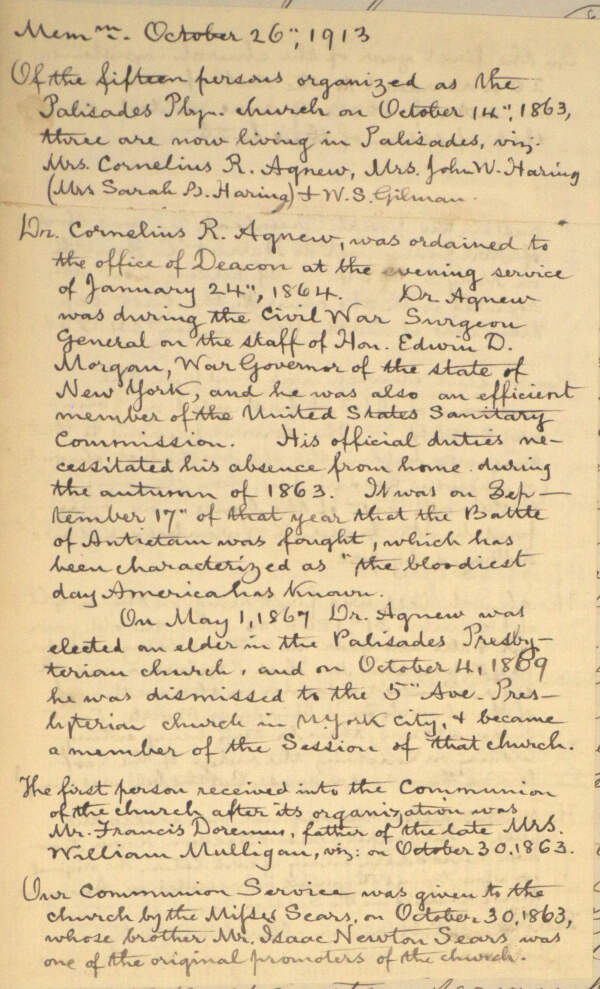 Mem^m. October 26", 1913
Of the fifteen persons organized as the
Palisades Pby. church on October 14", 1863,
three are now living in Palisades, viz.
Mrs. Cornelius R. Agnew, Mrs. John W. Haring
(Mrs Sarah B. Haring) + W. S. Gilman.
Dr. Cornelius R. Agnew, was ordained to
the office of Deacon at the evening service
of January 24", 1864. Dr. Agnew
was during the Civil War Surgeon
General on the staff of Hon. Edwin D.
Morgan, War Governor of the state of
New York, and he was also an efficient
member of the United States Sanitary
Commission. His official duties ne-
cessitated his absence from home during
the autumn of 1863. It was on Sep-
tember 17" of that year that the Battle
of Antietam was fought, which has
been characterized as "the bloodiest
day America has known.
On May 1, 1867 Dr. Agnew was
elected an elder in the Palisades Presby-
terian church, and on October 4, 1869
he was dismissed to the 5" Ave. Pres-
byterian church in N. York city, + became
a member of the Session of that church.
The first person received into the Communion
of the church after its organization was
Mr. Francis Doremus, father of the late Mrs.
William Mulligan, viz: on October 30. 1863.
Our Communion Service was given to the
church by the Misses Sears, on October 30, 1863,
whose brother Mr. Isaac Newton Sears was
one of the original promoters of the church.